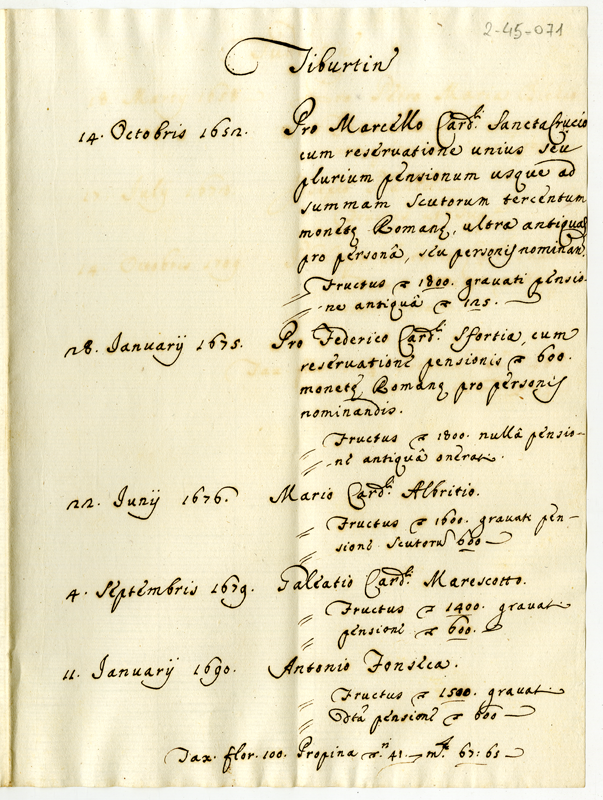 2-45-071
Tiburtin
14. Octobris 1652. Pro Marcello Card. Sanctacrucio
cum reservatione unius seu
plurium pensionum usque ad
summam scutorum tercentum
monetę Romanę, ultra antiquas
pro personâ, seu personis nominan.
Fructus 1800. gravati pensio-
-ne antiquâ 125.
28. Januarij 1675. Pro Federico Card. Sfortia, cum
reservatione pensionis 600.
monetę Romanę pro personis
nominandis.
Fructus 1800. nullâ pensio-
-ne antiquâ onerat.
22. Junij 1676. Mario Card. Albritio.
Fructus 1600. gravati pen-
sione scutorū 600
4. Septembris 1679. Galeatio Card. Marescotto.
Fructus 1400. gravat.
pensione 600.
11. Januarij 1690. Antonio Fonseca.
Fructus 1500. gravat.
dta pensione 600
Tax. flor. 100. Propina 41. 67: 65